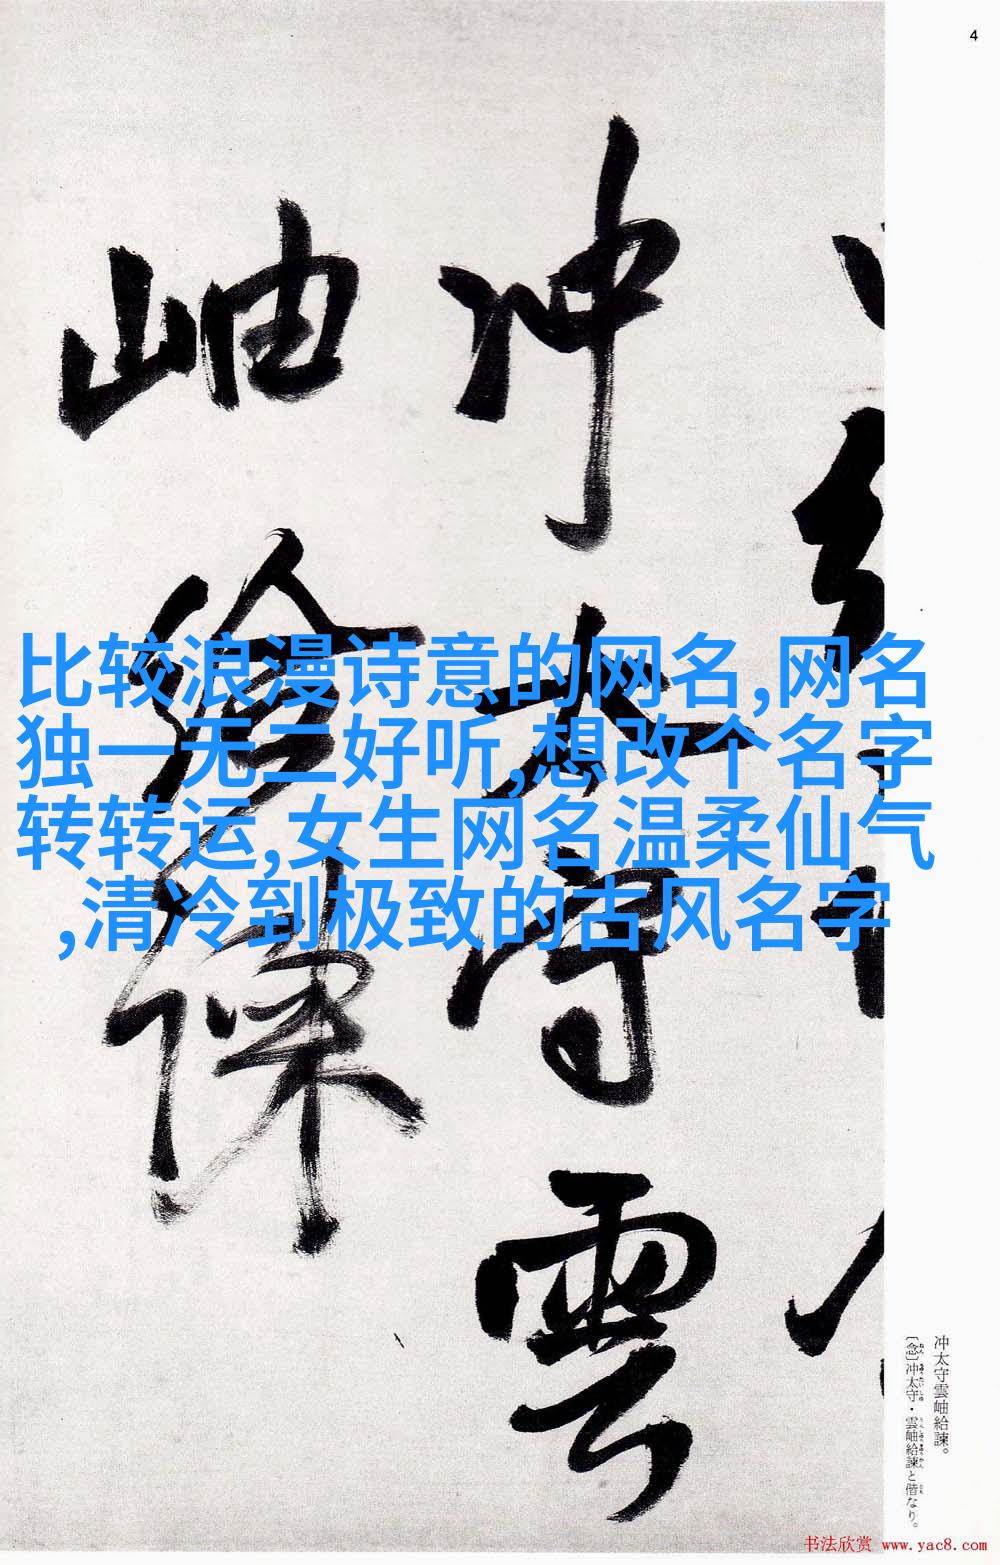 4
冲太守雲
岫給諫
比较浪漫诗意的网名,网名
独一无二好听,想改个名字
转转运,女生网名温柔仙气
,清冷到极致的古风名字
冲太守雲岫給諫。
〔念〕冲太守・雲岫給諫と偕なり。
书法欣赏 www.yac8.com